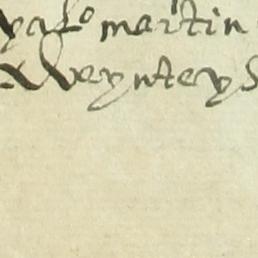 yalo martin
Weynteys